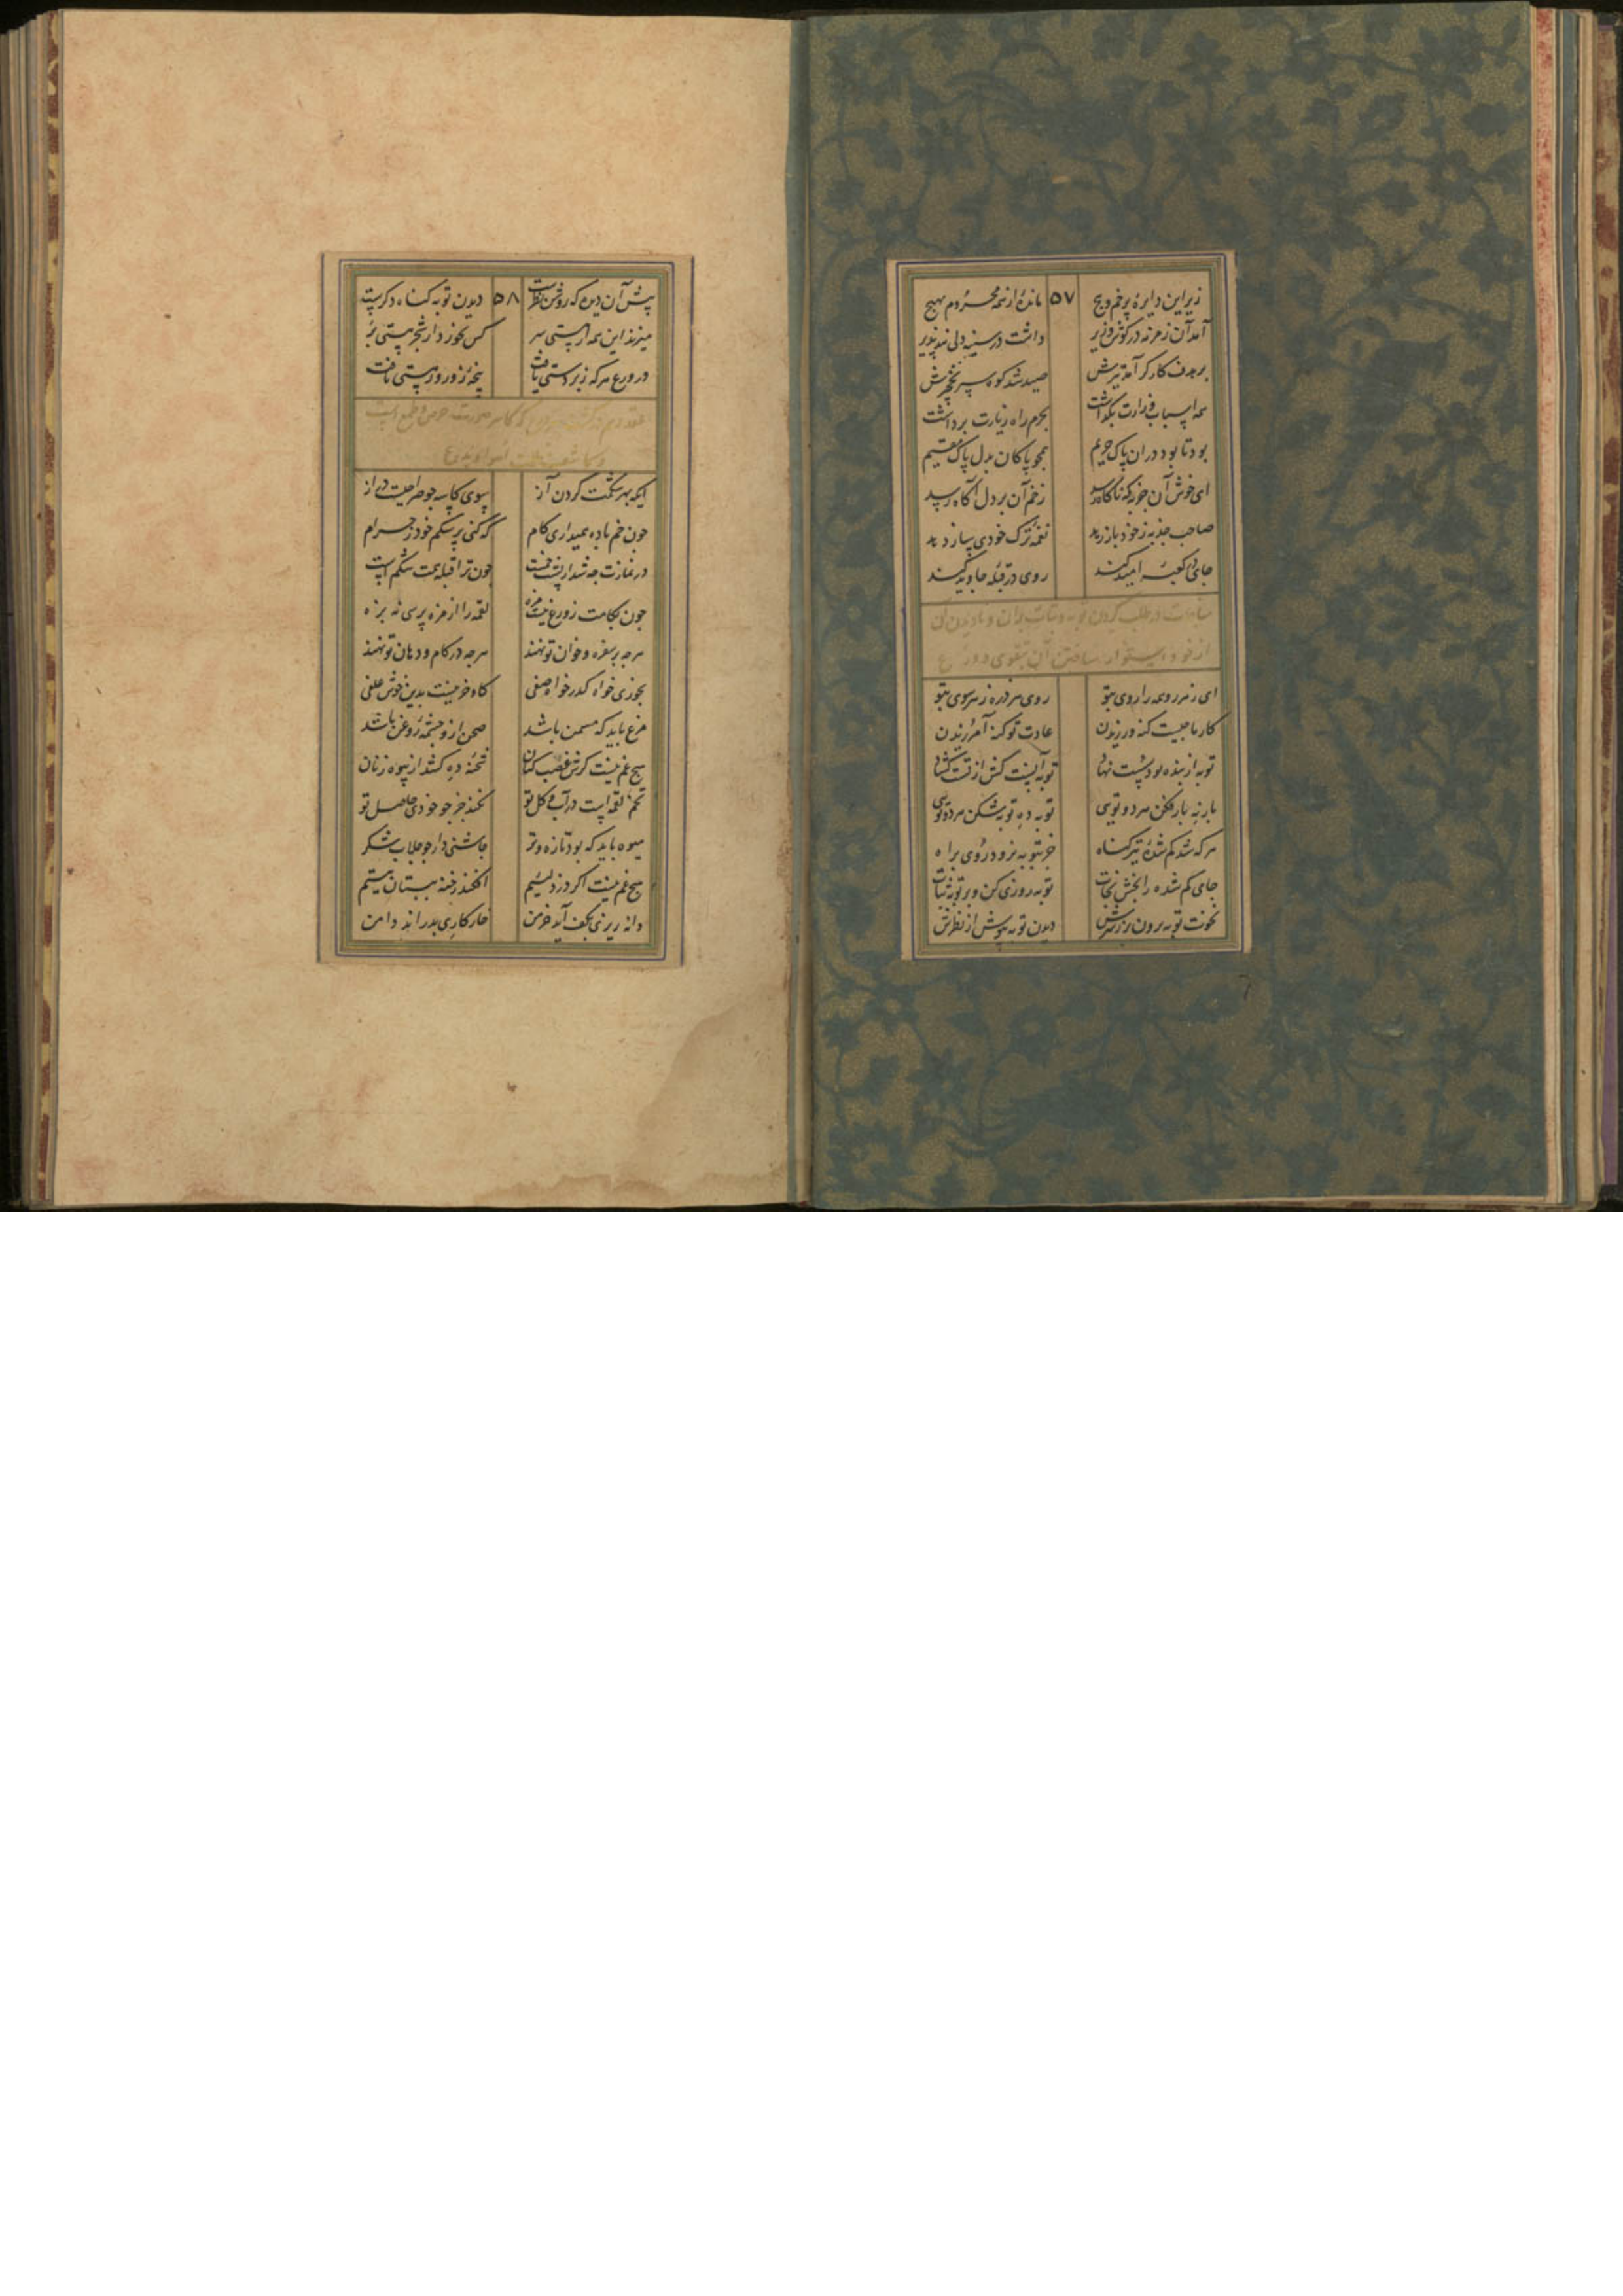 زیر این دایرهٔ پر خم و پیچ ۵۷ ماندهٔ از همه محروم بهیچ
آمد آن زمزمه در گوش وزیر داشت در سینه دلی پند پذیر
بر هدف کارگر آمد تیرش صید شد کوه سپر نخچیرش
همه اسباب وزارت بگذاشت بحرم راه زیارت برداشت
بود تا بود در آن پاک حریم همچو پاکان بدل پاک مقیم
ای خوش آن جذبه که ناگاه رسد زخم آن بر دل آگاه رسد
صاحب جذبه ز خود باز رهد نغمه ترک خودی ساز دهد
جای در کعبهٔ امید کند روی در قبلهٔ جاوید کند
مناجات در طلب کردن توبه و ثبات بر آن و نادیدن آن
از خود و استوار ساختن آن بتقوی و ورع
ای ز هر روی همه را روی بتو روی هر ذره ز هر سوی بتو
کار ما چیست گنه ورزیدن عادت تو گنه آمرزیدن
توبه از بنده بود سست نهاد توبه آنست کش از تست گشاد
بار نه بار فکن هر دو تویی توبه ده توبه شکن هر دو تویی
هر که شد گم شدهٔ تیه گناه جز بتوبه نرود روی براه
جای گم شده را بخش نجات توبه روزی کن و بر توبه ثبات
نخوت توبه برون بر ز سرش دیدن توبه بپوش از نظرش
پیش آن دیده که روشن نظرست ۵۸ دیدن توبه گناه دگرست
میزند این همه از هستی سر کس نخورد از شجر هستی بر
در ورع هر که زبردستی یافت پنجهٔ زور ورا هستی تافت
ایکه بهر شکمت گردن آز سوی کاسه چو صراحیست دراز
چون خم باده همیداری کام که کنی پر شکم خود ز حرام
در نمازت چه شد ار پشت خمست چون ترا قبلهٔ همت شکمست
چون بکامت ز ورع نیست مزه لقمه را از مزه پرسی نه بزه
هر چه بر سفره و خوان تو نهند هر چه در کام و دهان تو نهند
بخوری خواه کدر خواه صفی گاو و خر نیست بدین خوش علفی
مرغ باید که مسمن باشد صحن ازو چشمهٔ روغن باشد
هیچ غم نیست گرش غصب کنان شحنهٔ ده کشد از بیوه زنان
تخم لقمه است در آب و گل تو نکند جز جو خودی حاصل تو
میوه باید که بود تازه و تر چاشنی دار چو جلاب شکر
هیچ غم نیست اگر دزد لئیم افکند رخنه ببستان یتیم
دانه ریزی بکف آید خرمن خار کاری بدراند دامن